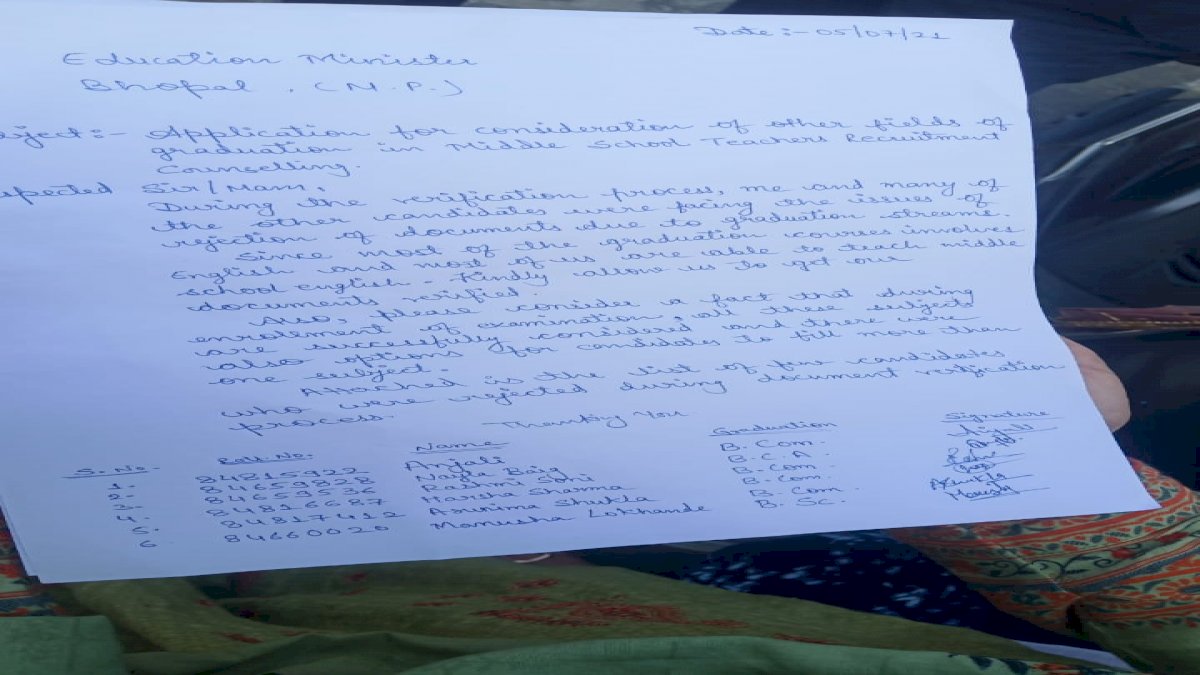 Date :- 05/07/21
Education Minister
Bhopal . (M.P.)
bject :- Application for consideration of other fields of
graduation in Middle School Teachers Recruitment
Counselling.
spected Sir/Mam,
During the verification process, me and many of
the other candidates were facing the issues of
rejection of documents due to graduation streams.
Since most of the graduation courses involves
English and most of us are able to teach middle
school english - Kindly allow us to get our
documents verified.
Also, please consider a fact that during
enrolement of examination, all these subjects
are successfully considered and there were
also options for candidates to fill more than
one subject.
Attached is the list of few candidates
who were rejected during document verification
process.
Thanking You
S. No. Roll No. Name Graduation Signature
1- 84815922 Anjali B. Com. Anjali
2- 84659828 Nayla Baig B.C.A.
3- 84659536 Rashmi Soni B. Com.
4. 84816687 Harsha Sharma B. Com.
5. 84817412 Arunima Shukla B. Com.
6 84660020 Manusha Lokhande B. Sc